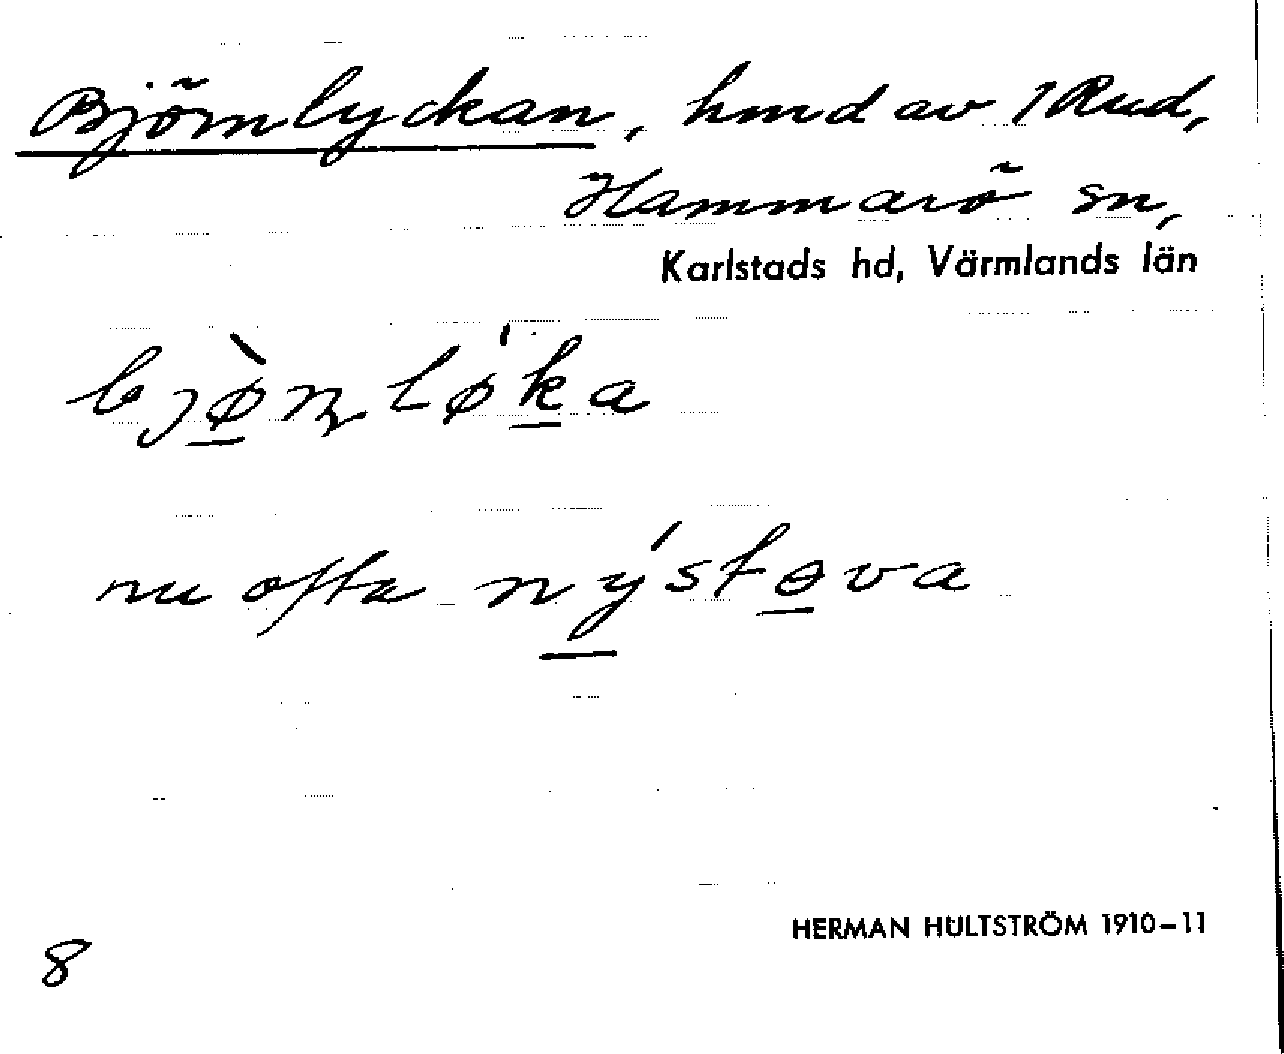 Björnlyckan, hmd av 1 Rud,
Hammarö sn,
Karlstads hd, Värmlands län
bjø̀ɳløka
nu ofta nýstɵva
HERMAN HULTSTRÖM 1910–11
8